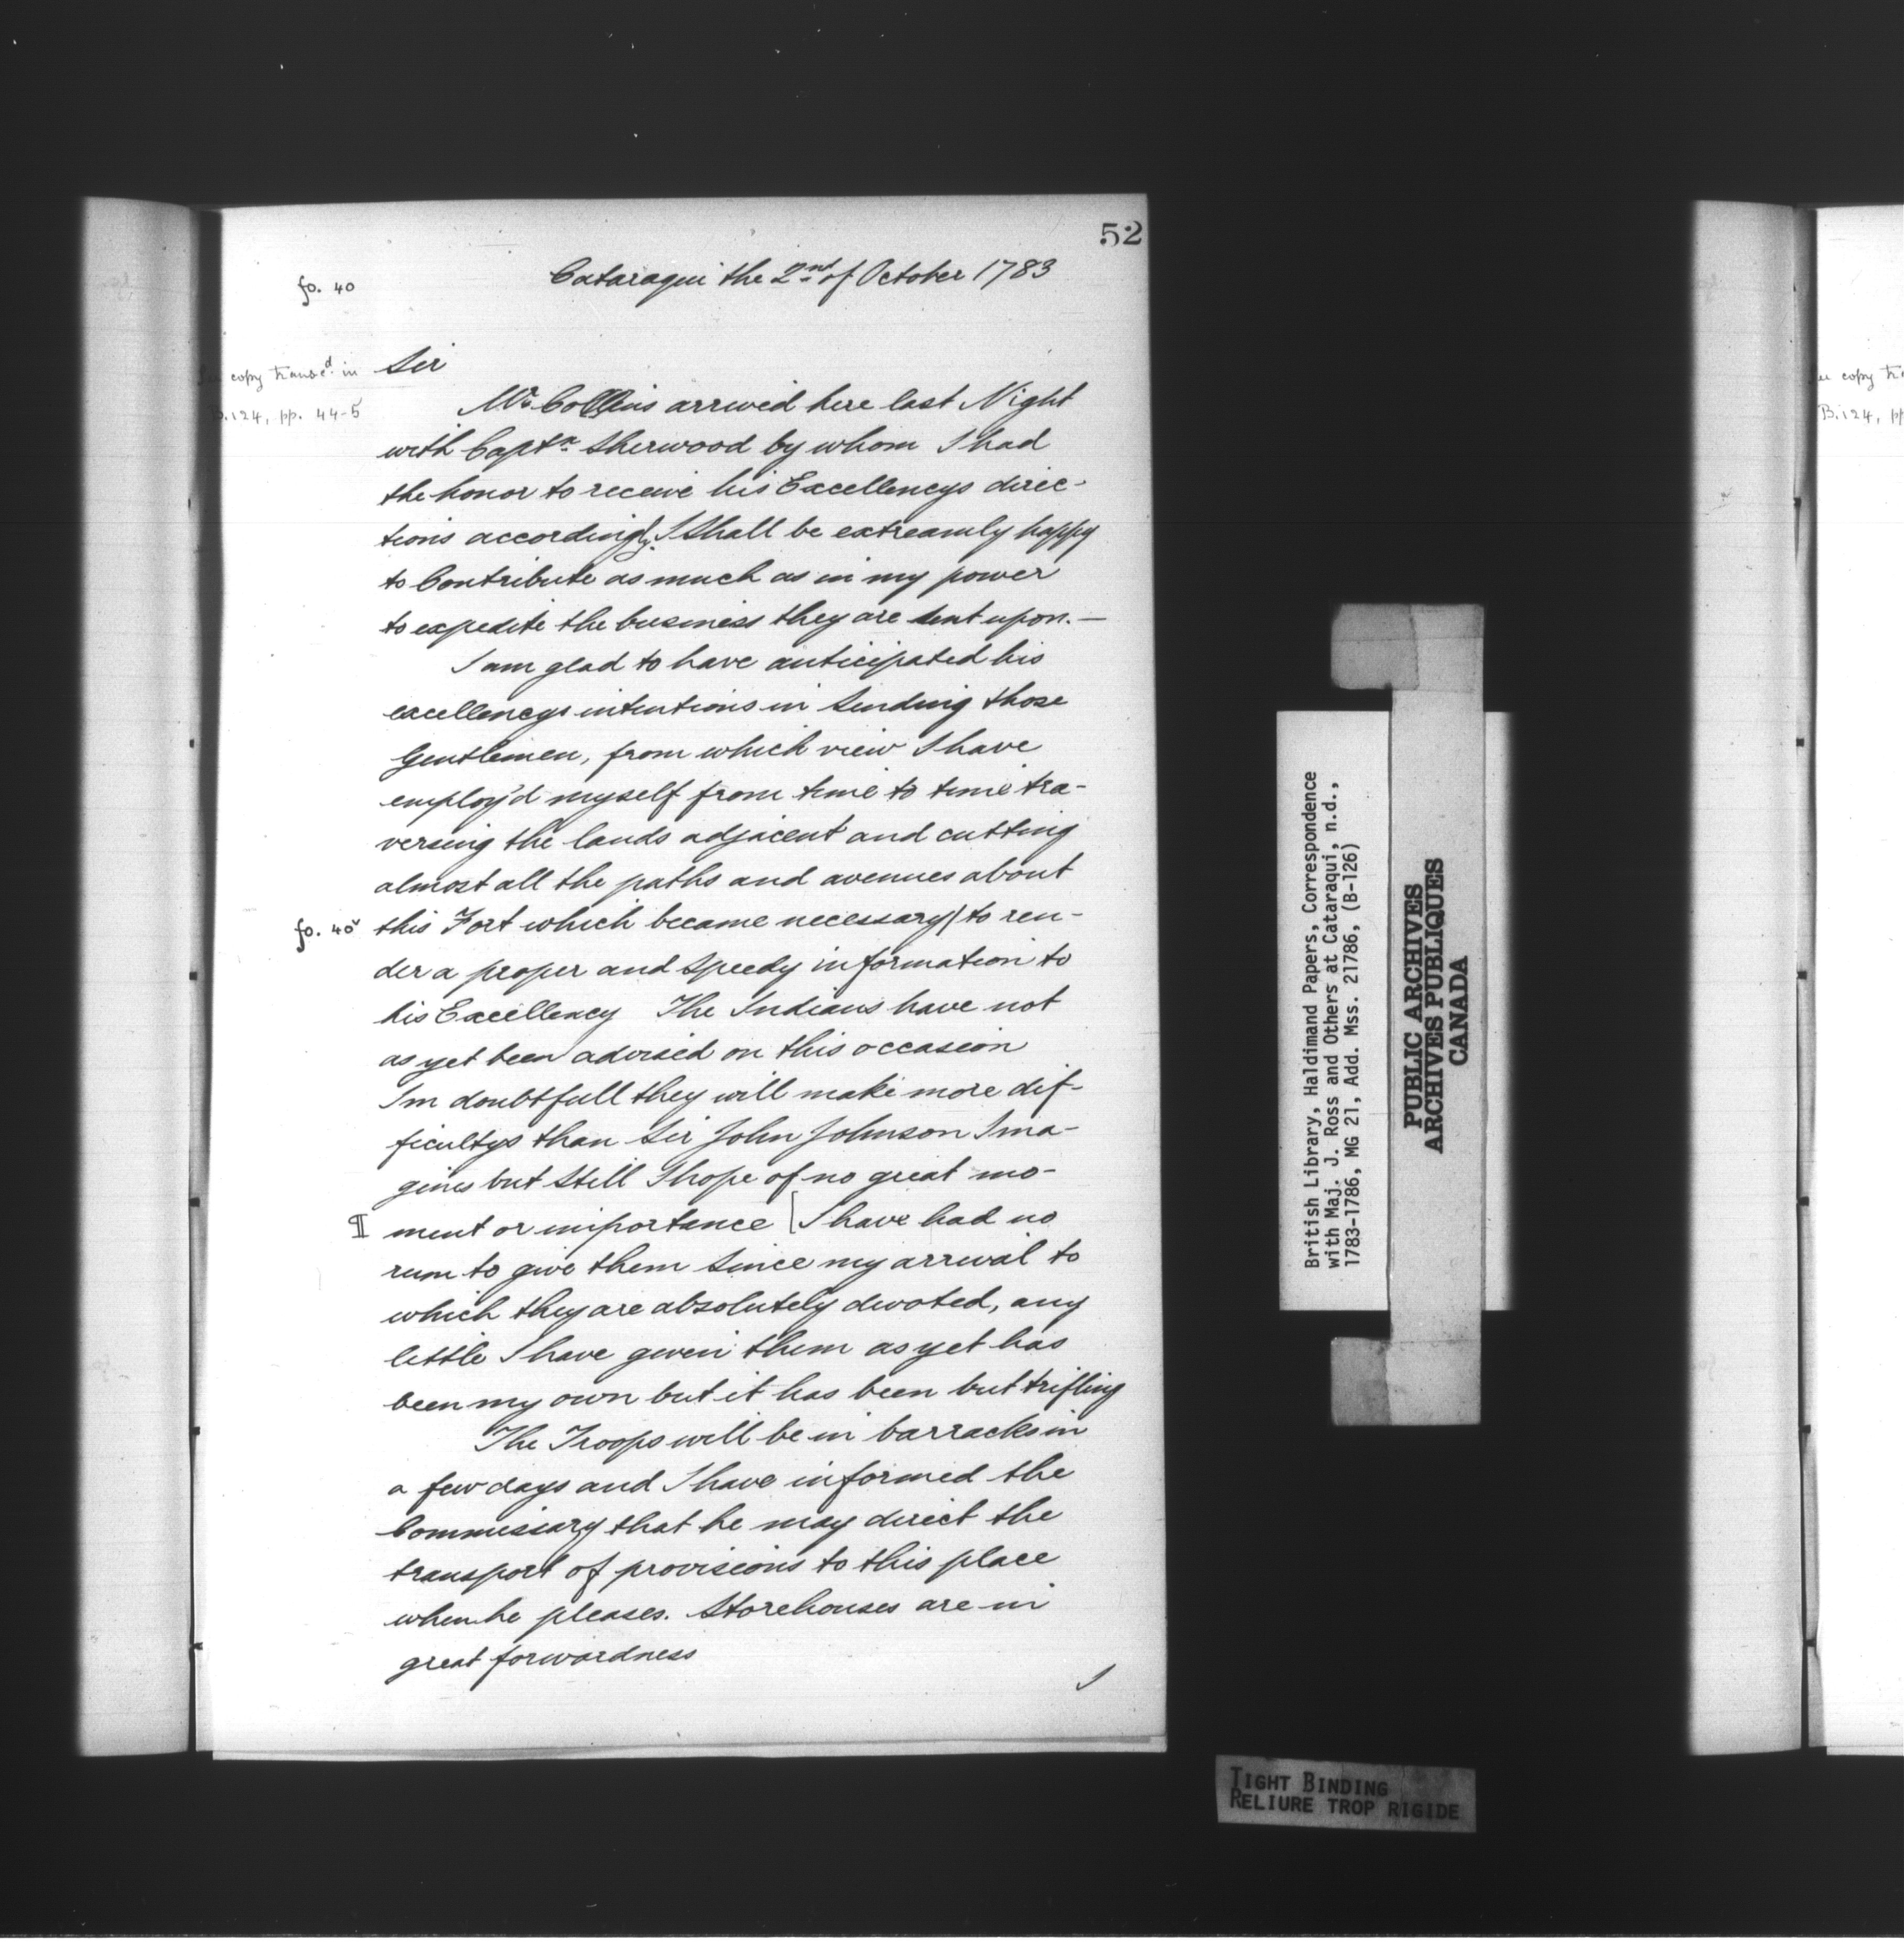 52
fo. 40
Cataraqui the 2nd of October 1783
See copy transcd. in
B.124, pp. 44-5
Sir
Mr Collins arrived here last Night
with Captn. Sherwood by whom I had
the honor to receive his Excellencys direc-
tions accordingly. I Shall be extreamly happy
to Contribute as much as in my power
to expedite the business they are sent upon.—
I am glad to have anticipated his
excellencys intentions in Sending those
Gentlemen, from which view I have
employ'd myself from time to time tra-
versing the lands adjacent and cutting
almost all the paths and avenues about
fo. 40v
this Fort which became necessary/ to ren-
der a proper and speedy information to
his Excellency The Indians have not
as yet been advised on this occasion
I'm doubtfull they will make more dif-
ficultys than Sir John Johnson Ima-
gines but Still I hope of no great mo-
¶ ment or importance [I have had no
rum to give them Since my arrival to
which they are absolutely devoted, any
little I have given them as yet has
been my own but it has been but trifling
The Troops will be in barracks in
a few days and I have informed the
Commissary that he may direct the
transport of provisions to this place
when he pleases. Storehouses are in
great forwardness
I
British Library, Haldimand Papers, Correspondence
with Maj. J. Ross and Others at Cataraqui, n.d.,
1783-1786, MG 21, Add. Mss. 21786, (B-126)
PUBLIC ARCHIVES
ARCHIVES PUBLIQUES
CANADA
TIGHT BINDING
RELIURE TROP RIGIDE
copy tra
B.124, pp